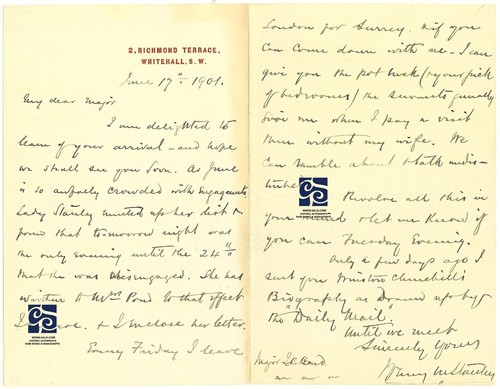 2, RICHMOND TERRACE,
WHITEHALL, S.W.
June 17th 1901.
My dear Major
I am delighted to
learn of your arrival – and hope
we shall see you soon. As June
is so awfully crowded with engagements
Lady Stanley looked up her list &
found that to-morrow night was
the only evening until the 24th
that she was disengaged. She has
written to Mrs Pond to that effect
I believe. & I enclose her letter.
Every Friday I leave
London for Surrey. & if you
can come down with me – I can
give you the pot luck (& your pick
of bedrooms) the servants generally
give me when I pay a visit
there without my wife. We
can ramble about & talk undis-
turbed.
Revolve all this in
your mind & let me know if
you can Tuesday Evening.
Only a few days ago I
sent you Winston Churchill's
Biography as drawn up by
the "Daily Mail."
Until we meet
Sincerely yours
Henry M Stanley
Major J. B. Pond
WWW.GALR.COM
HISTORIC AUTOGRAPHS
RARE BOOKS & MANUSCRIPTS
WWW.GALR.COM
HISTORIC AUTOGRAPHS
RARE BOOKS & MANUSCRIPTS